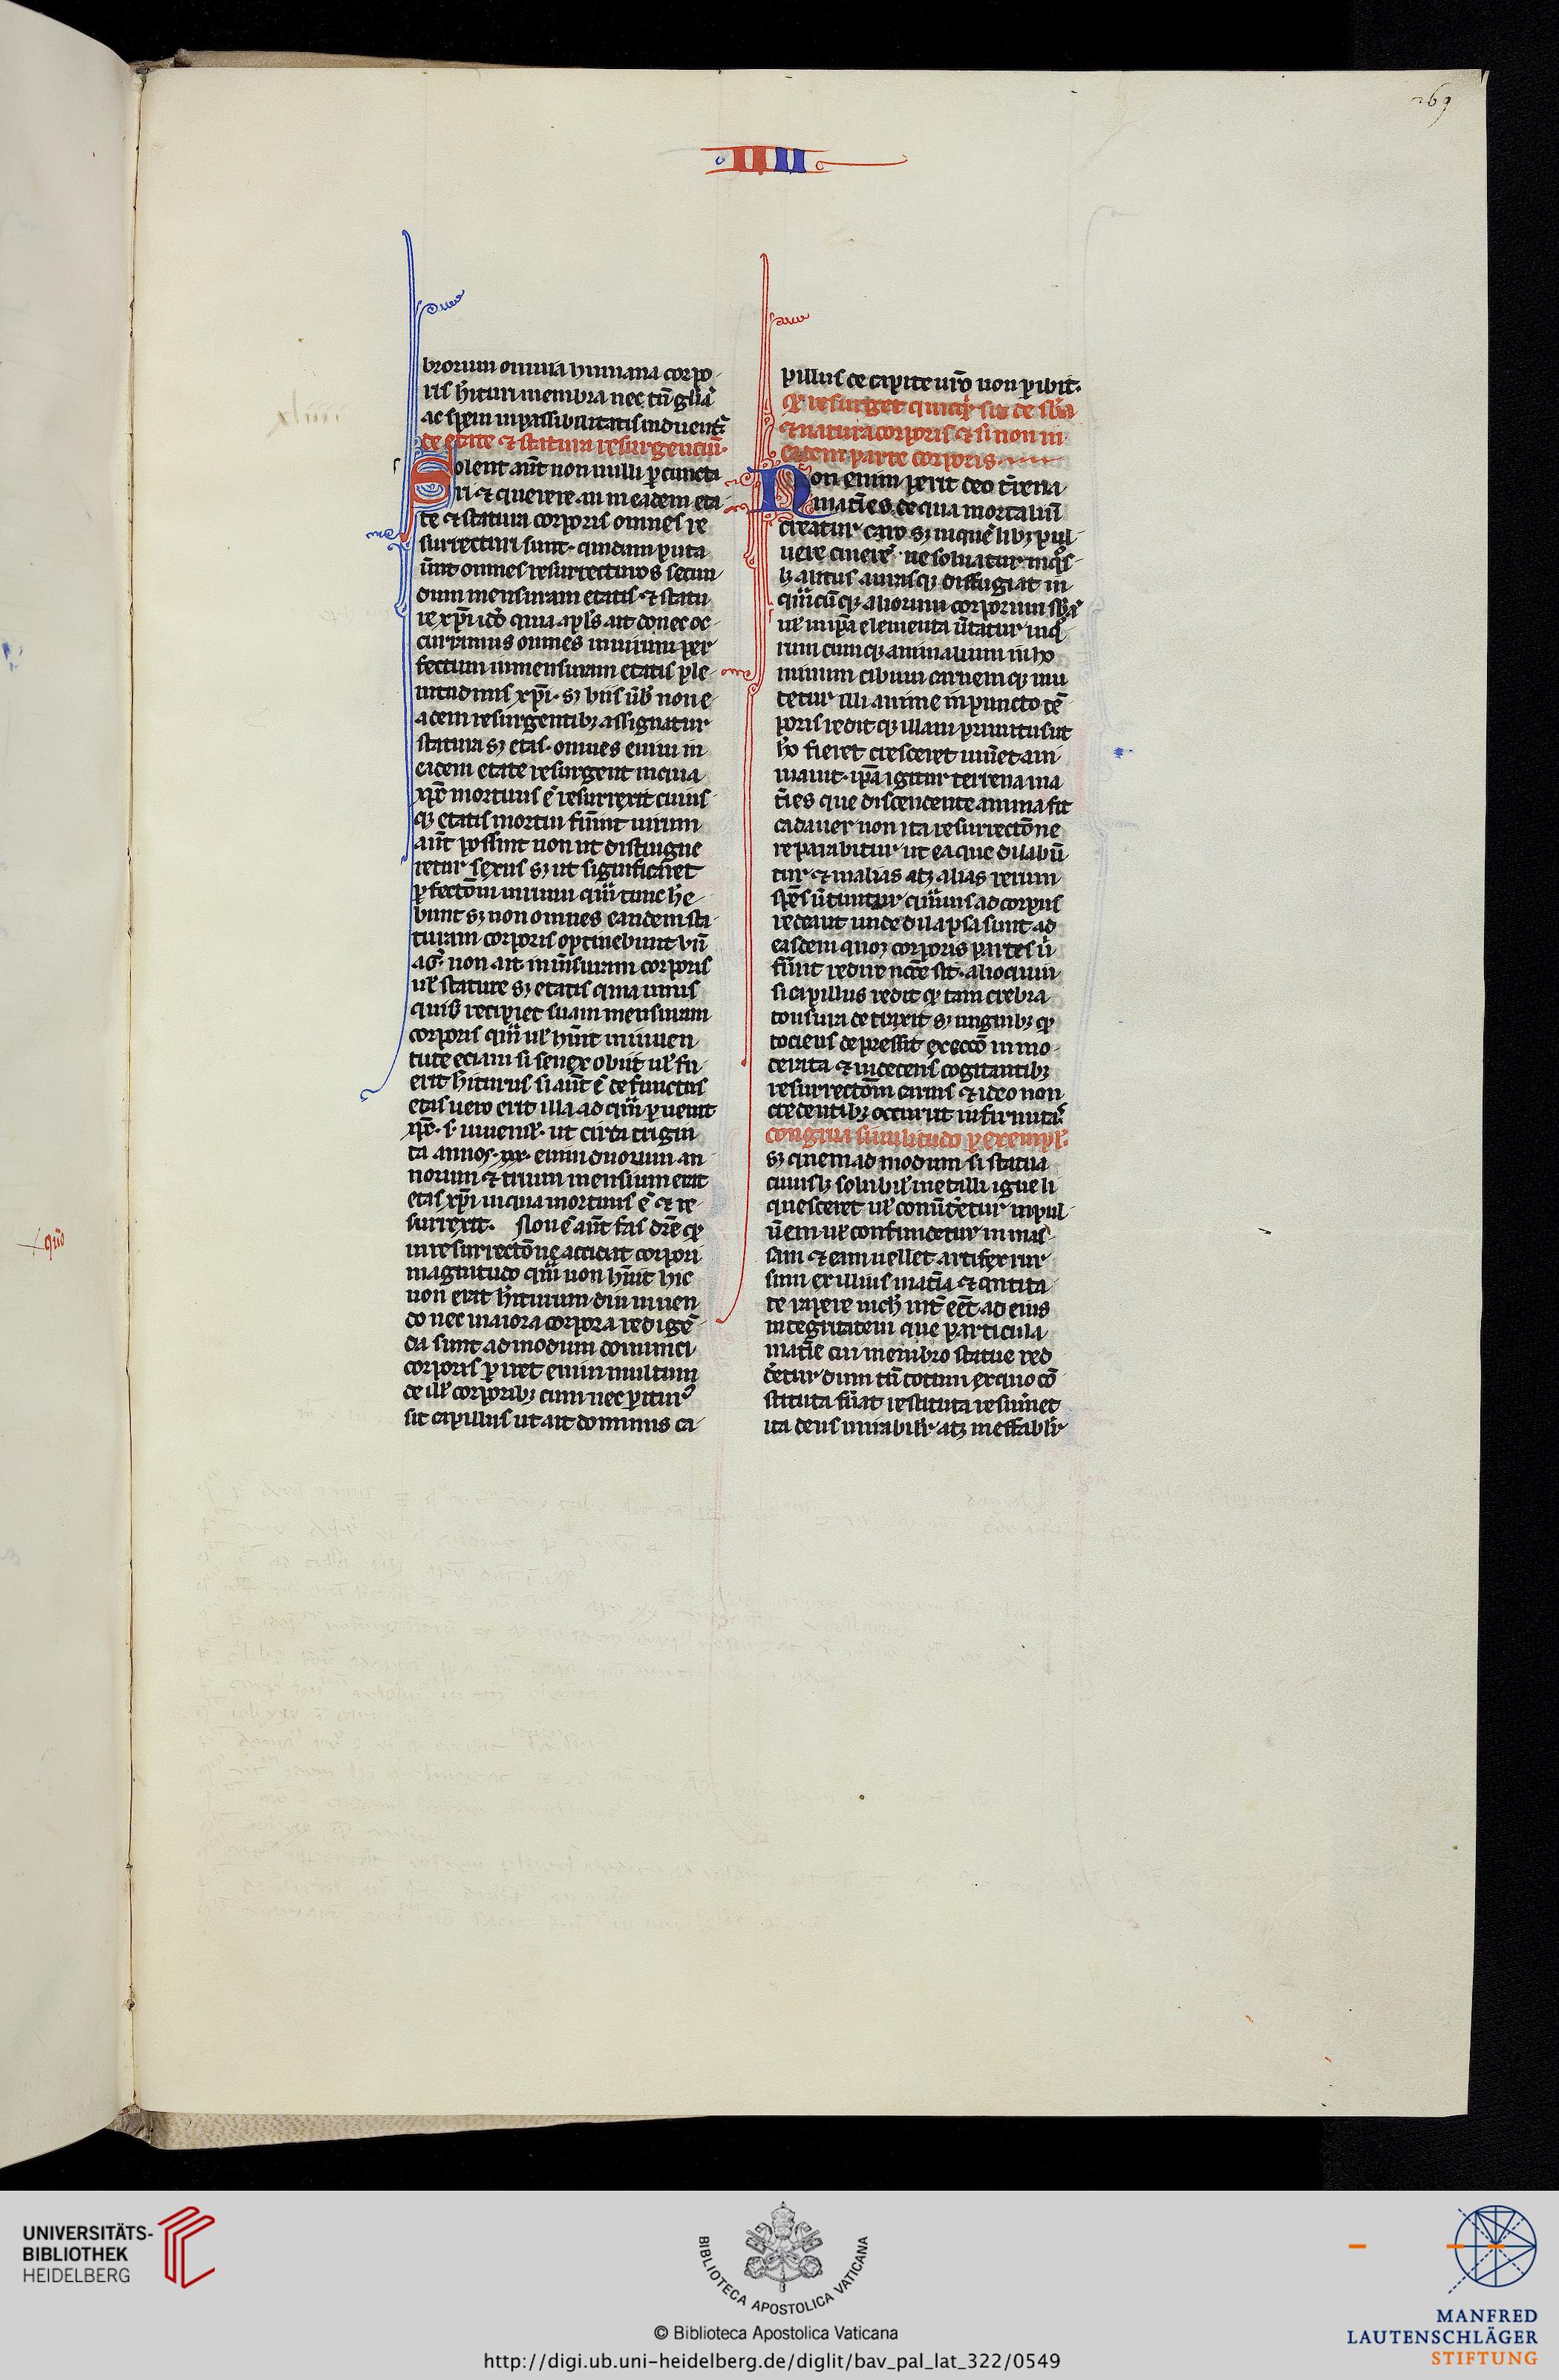 269
IIII
brorum omnia humana corpo
ris hitura membra nec tñ gl̃iã
ac spem inpassibilitatis induent᷑
de etate ⁊ statura resurgenciũ.
Solent aũt non nulli ꝑcuncta
ri ⁊ querere an in eadem eta
te ⁊ statura corporis omnes re
surrecturi sunt. quidam puta
ũnt omnes resurrecturos secun
dum mensuram etatis ⁊ statu
re xp̃i ido̾ quia apl̃s ait donec oc
curramus omnes in uirum per
fectum in mensuram etatis ple
nitudinis xp̃i. sꝫ hiis ũb̾ non e
adem resurgentibꝫ assignatur
statura sꝫ etas. omnes enim in
eadem etate resurgent in qua
xp̃c mortuus ẽ ⁊ resurrexit cuius
qꝫ etatis mortui fũint uirum
aũt possuit non ut distingue
retur sexus sꝫ ut significaret
ꝑfectõm uirium quã tunc he
bunt sꝫ non omnes eandem sta
turam corporis optinebunt vñ
aĠ non ait in mensuram corporis
ul̾ stature sꝫ etatis quia unus
quisqꝫ recipiet suam mensuram
corporis quã ul̾ hũit in iuuen
tute eciam si senex obiit ul̾ fu
erit hiturus si aũt ẽ defunctus
etas uero erit illa ad quã ꝑuenit
xp̃c. s. iuuenil̾. ut circa trigin
ta annos. xxx. enim duorum an
norum ⁊ trium mensium erat
etas xp̃i in qua mortuus ẽ ⁊ re
surrexit. Non ẽ aũt fas dr̃e qꝫ
in resurrectõne accidat corpori
magnitudo quã non hũit hic
non erat hiturum diu uiuen
do nec maiora corpora redigẽ
da sunt ad modum dominici
corporis ꝑiret enim multum
de ill̾ corporibꝫ cum nec ꝑitur᷒
sit capillus ut ait dominus ca
pillus de capite ur̃o non ꝑibit.
Qꝫ resurget quicqͥd fuit de sb̃a
⁊ natura corporis ⁊ si non in
eadem parte corporis
Non enim perit deo t̾rena
mat̾ies de qua mortaliũ
creatur caro sꝫ in quẽlibꝫ pul
uere cinerẽ.ue soluatur in qͦs
lꝫ alitus aurasqꝫ diffugiat in
quãcũqꝫ aliorum corporum sb̃ã
ul̾ in ipã elementa ũtatur in qͦ
rumcumqꝫ animalium ul̾ ho
minum cibum carnemqꝫ mu
tetur illi anime in puncto tẽ
poris redit qꝫ illam primitus ut
hͦ fieret cresceret uiũet ani
mauit. ipã igitur terrena ma
t̾ies que discendente anima fit
cadauer non ita resurrectõne
reparabitur ut ea que dilabũ
tur ⁊ in alias atqꝫ alias rerum
spẽs ũtuntur quãuis ad corpus
redeant unde dilapsa sunt ad
easdem quoqꝫ corporis partes ũ
fũint redire nc̃ce sit. alioquin
si capillus redit qꝫ tam crebra
tonsura detraxit sꝫ unguibꝫ qꝫ
tociens depressit execcõ inmo
derata ⁊ indecens cogitantibꝫ
resurrectõm carnis ⁊ ideo non
credentibꝫ occurrit infirmitas᷒
congrua similitudo ꝑ exempl̾.
sꝫ quemadmodum si statua
cuiuslꝫ solubil̾ metalli igne li
quesceret ul̾ conũt̾etur in pul
ũem ul̾ confunderur in mas
sam ⁊ eam uellet artifex rur
sum ex illius mat̾ia ⁊ qntita
te reparare nich̾ int̾ eẽt ad eius
integritatem que particula
mat̾ie cui membro statue red
det̾ur dum tñ totum ex quo cõ
stituta fũat restituta resumet
ita deus mirabil̾r atqꝫ ineffabl̾r
quo
UNIVERSITÄTS-
BIBLIOTHEK
HEIDELBERG
BIBLIOTECA APOSTOLICA VATICANA
© Biblioteca Apostolica Vaticana
http://digi.ub.uni-heidelberg.de/diglit/bav_pal_lat_322/0549
MANFRED
LAUTENSCHLÄGER
STIFTUNG